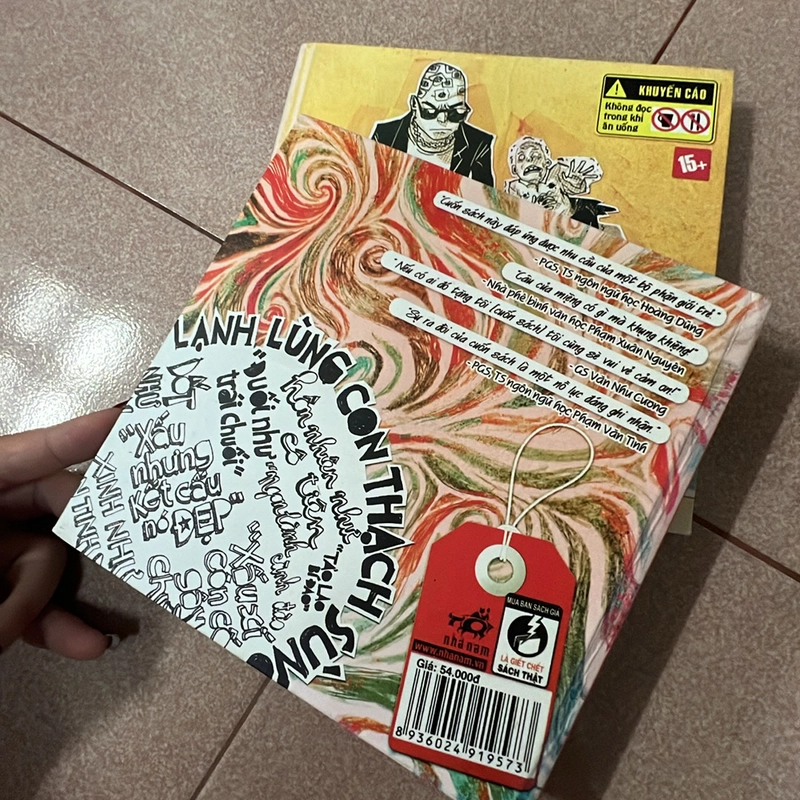 KHUYẾN CÁO
Không đọc
trong khi
ăn uống
15+
"Cuốn sách này đáp ứng được nhu cầu của một bộ phận giới trẻ."
- PGS, TS ngôn ngữ học Hoàng Dũng
"Câu của miệng có gì mà khụng khiệng!"
- Nhà phê bình văn học Phạm Xuân Nguyên
"Nếu có ai đó tặng tôi (cuốn sách) tôi cũng sẽ vui vẻ cảm ơn!"
- GS Văn Như Cương
"Sự ra đời của cuốn sách là một nỗ lực đáng ghi nhận."
- PGS, TS ngôn ngữ học Phạm Văn Tình
LẠNH LÙNG CON THẠCH SÙNG
DỐT
NHƯ
"Xấu
nhưng
kết cấu
nó
ĐẸP"
"ĐUỐI như
trái chuối"
hồn nhiên như
cô tiên
"TÀO LAO
BÍ ĐAO"
"Xấu xí
còn
XINH NHƯ
nhã nam
www.nhanam.vn
MUA BÁN SÁCH GIẢ
LÀ GIẾT CHẾT
SÁCH THẬT
Giá: 54.000đ
8 936024 919573